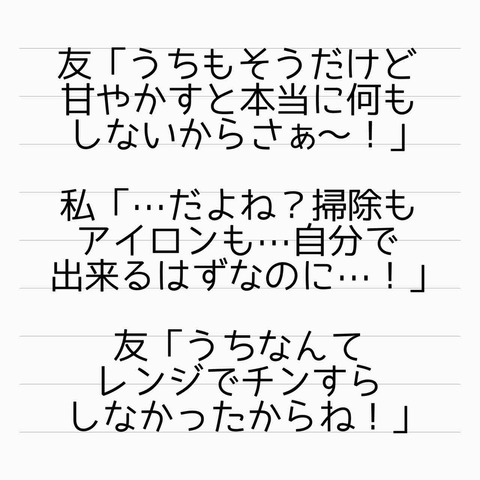 友「うちもそうだけど
甘やかすと本当に何も
しないからさぁ〜！」
私「…だよね？掃除も
アイロンも…自分で
出来るはずなのに…！」
友「うちなんて
レンジでチンすら
しなかったからね！」